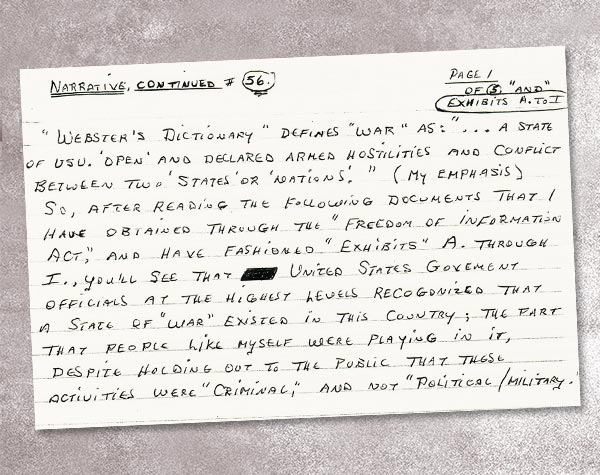 NARRATIVE, CONTINUED # 56.
PAGE 1
OF 3. "AND"
EXHIBITS A. TO I
"WEBSTER'S DICTIONARY" DEFINES "WAR" AS: "... A STATE
OF USU. 'OPEN' AND DECLARED ARMED HOSTILITIES AND CONFLICT
BETWEEN TWO 'STATES' OR 'NATIONS'." (MY EMPHASIS)
SO, AFTER READING THE FOLLOWING DOCUMENTS THAT I
HAVE OBTAINED THROUGH THE "FREEDOM OF INFORMATION
ACT," AND HAVE FASHIONED "EXHIBITS" A. THROUGH
I., YOU'LL SEE THAT UNITED STATES GOVEMENT
OFFICIALS AT THE HIGHEST LEVELS RECOGONIZED THAT
A STATE OF "WAR" EXISTED IN THIS COUNTRY; THE PART
THAT PEOPLE LIKE MYSELF WERE PLAYING IN IT,
DESPITE HOLDING OUT TO THE PUBLIC THAT THESE
ACTIVITIES WERE "CRIMINAL," AND NOT "POLITICAL/MILITARY.